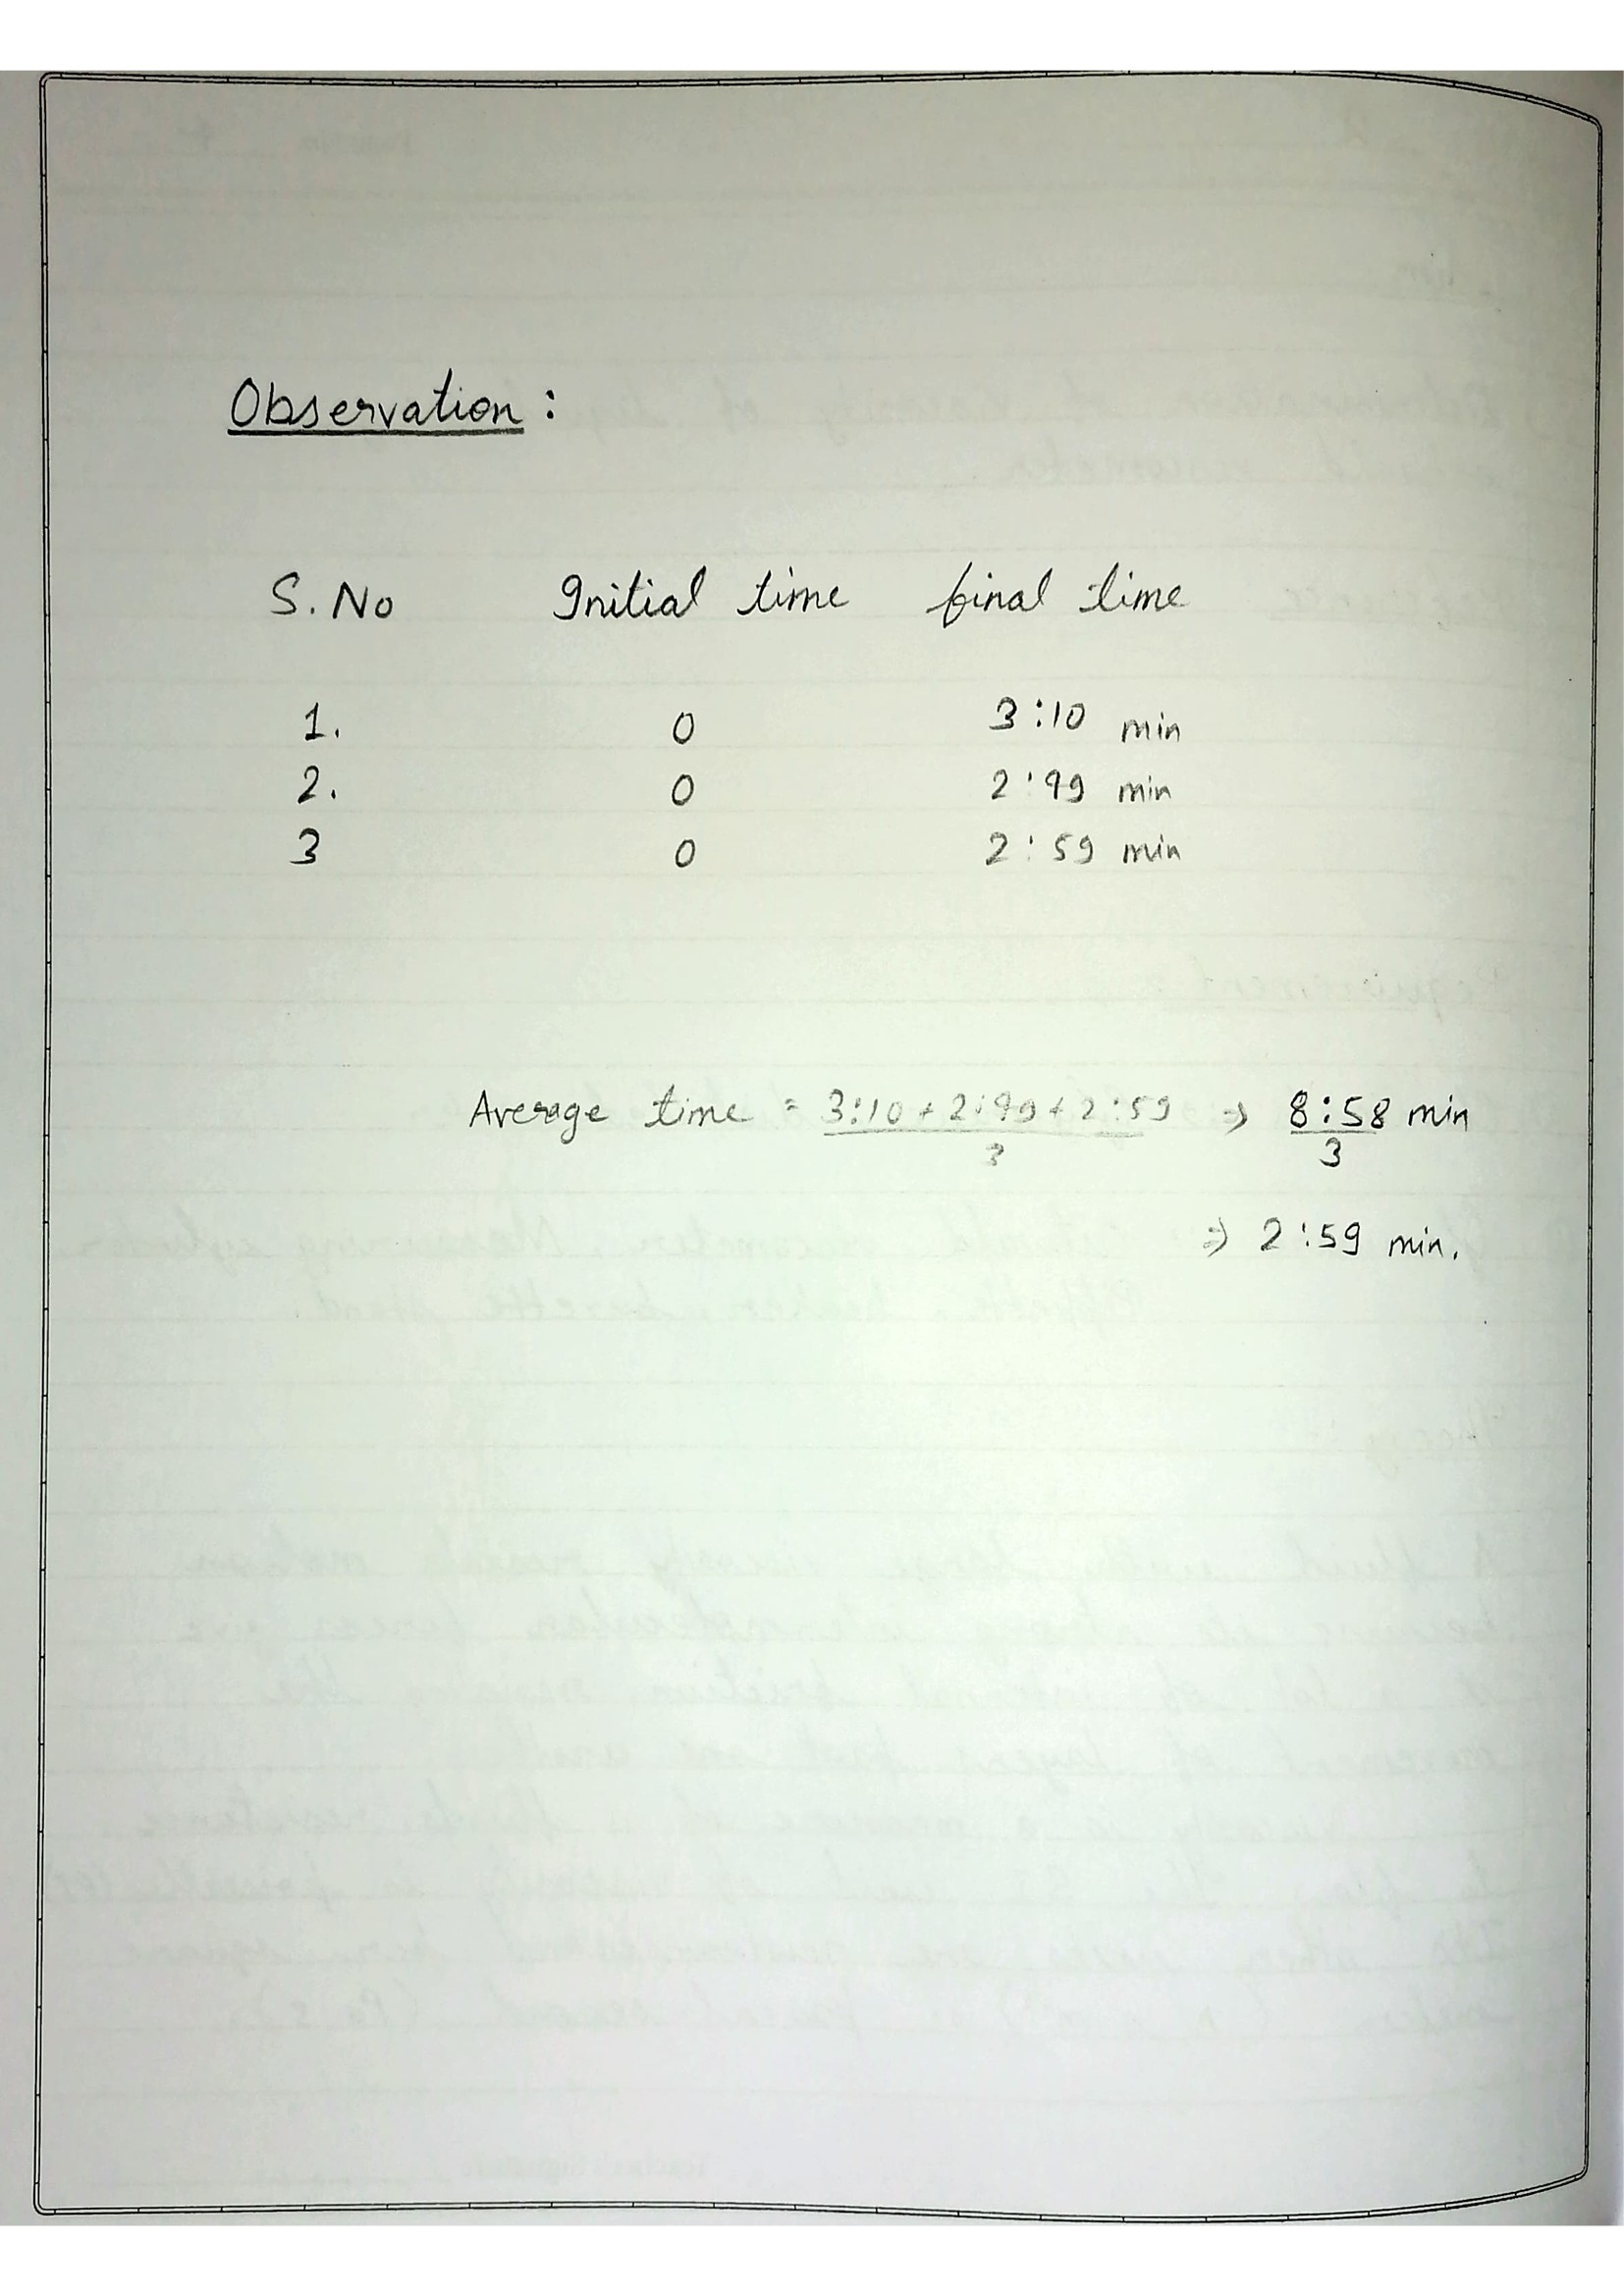 Observation :
S. No Initial time final time
1. 0 3:10 min
2. 0 2:49 min
3 0 2:59 min
Average time = 3:10 + 2:49 + 2:59 ⇒ 8:58 min
3 3
⇒ 2:59 min.